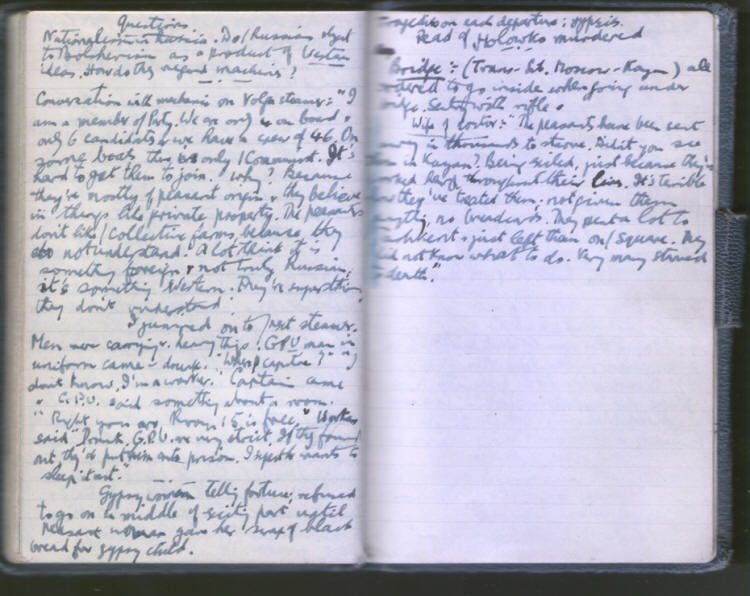 Questions
Nationalism in Russia. Do Russians object
to Bolshevism as a product of Western
ideas. How do they regard machines?
Conversation with mechanic on Volga steamer: "I
am a member of Party. We are only on board &
only 6 candidates & we have a crew of 46. On
some boats there is only 1 Communist. It's
hard to get them to join. Why? Because
they're mostly of peasant origin & they believe
in things like private property. The peasants
don't like collective farms, because they
do not understand. A lot think it is
something foreign & not truly Russian,
it's something Western. They're superstitious,
they don't understand.
I jumped on to next steamer.
Men were carrying heavy things. G.P.U man in
uniform came - drunk. "Where's captain?" "I
don't know, I'm a worker." Captain came
& G.P.U. said something about a room.
"Right you are, Room 15 is free." Worker
said "Drunk. G.P.U. are very strict. If they found
out, they'd put him into prison. I expect he wants to
sleep it out."
Gypsy women telling fortune; refused
to go on in middle of exciting part until
peasant woman gave her scrap of black
bread for gypsy child.
tragedies on each departure; gypsies.
Head of murdered
Bridge: (Trans-Sib. Moscow-Kazan) all
ordered to go inside when going under
bridge. Sentry with rifle.
Wife of doctor: "The peasants have been sent
away in thousands to starve. Didn't you see
them in Kazan? Being exiled, just because they'd
worked hard throughout their lives. It's terrible
how they've treated them; not given them
anything; no breadcards. They sent a lot to
Tashkent & just left them on square. They
did not know what to do. Very many starved
to death."